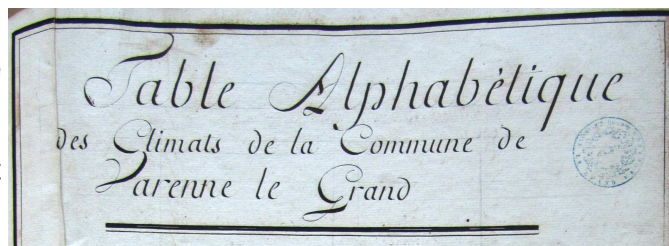 Table Alphabétique
des Climats de la Commune de
Varenne le Grand